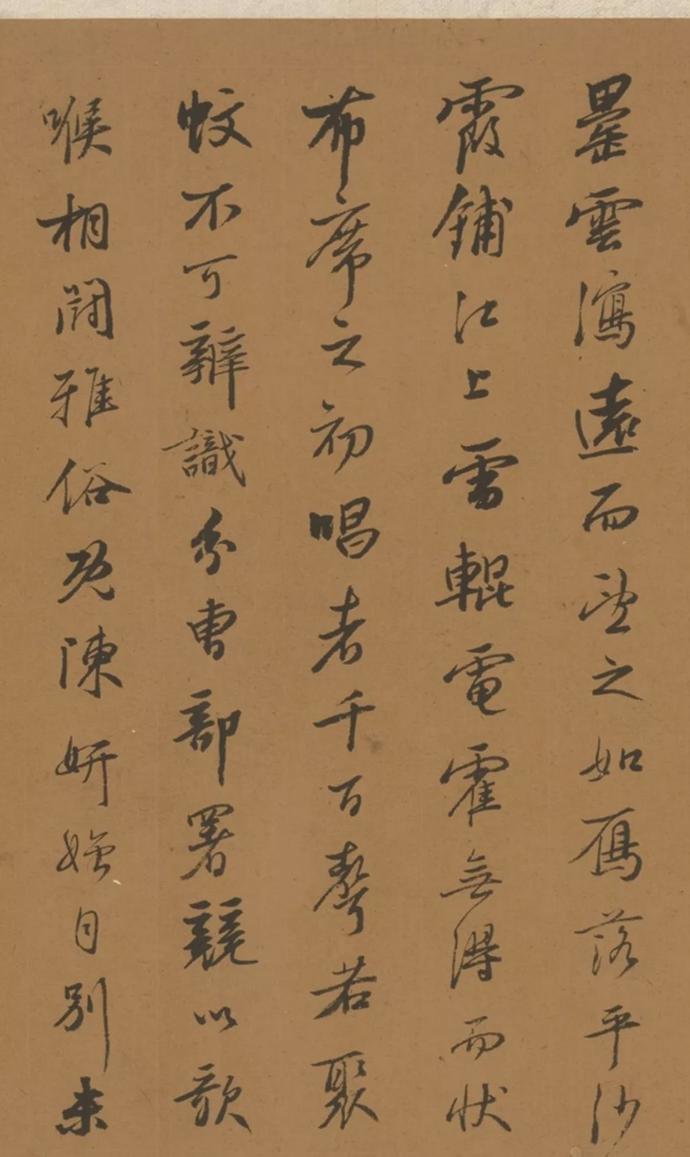 罍雲瀉遠而望之如雁落平沙
霞鋪江上雷輥電霍無得而狀
布席之初唱者千百聲若聚
蚊不可辨識分曹部署競以歌
喉相鬪雅俗既陳妍媸自別未